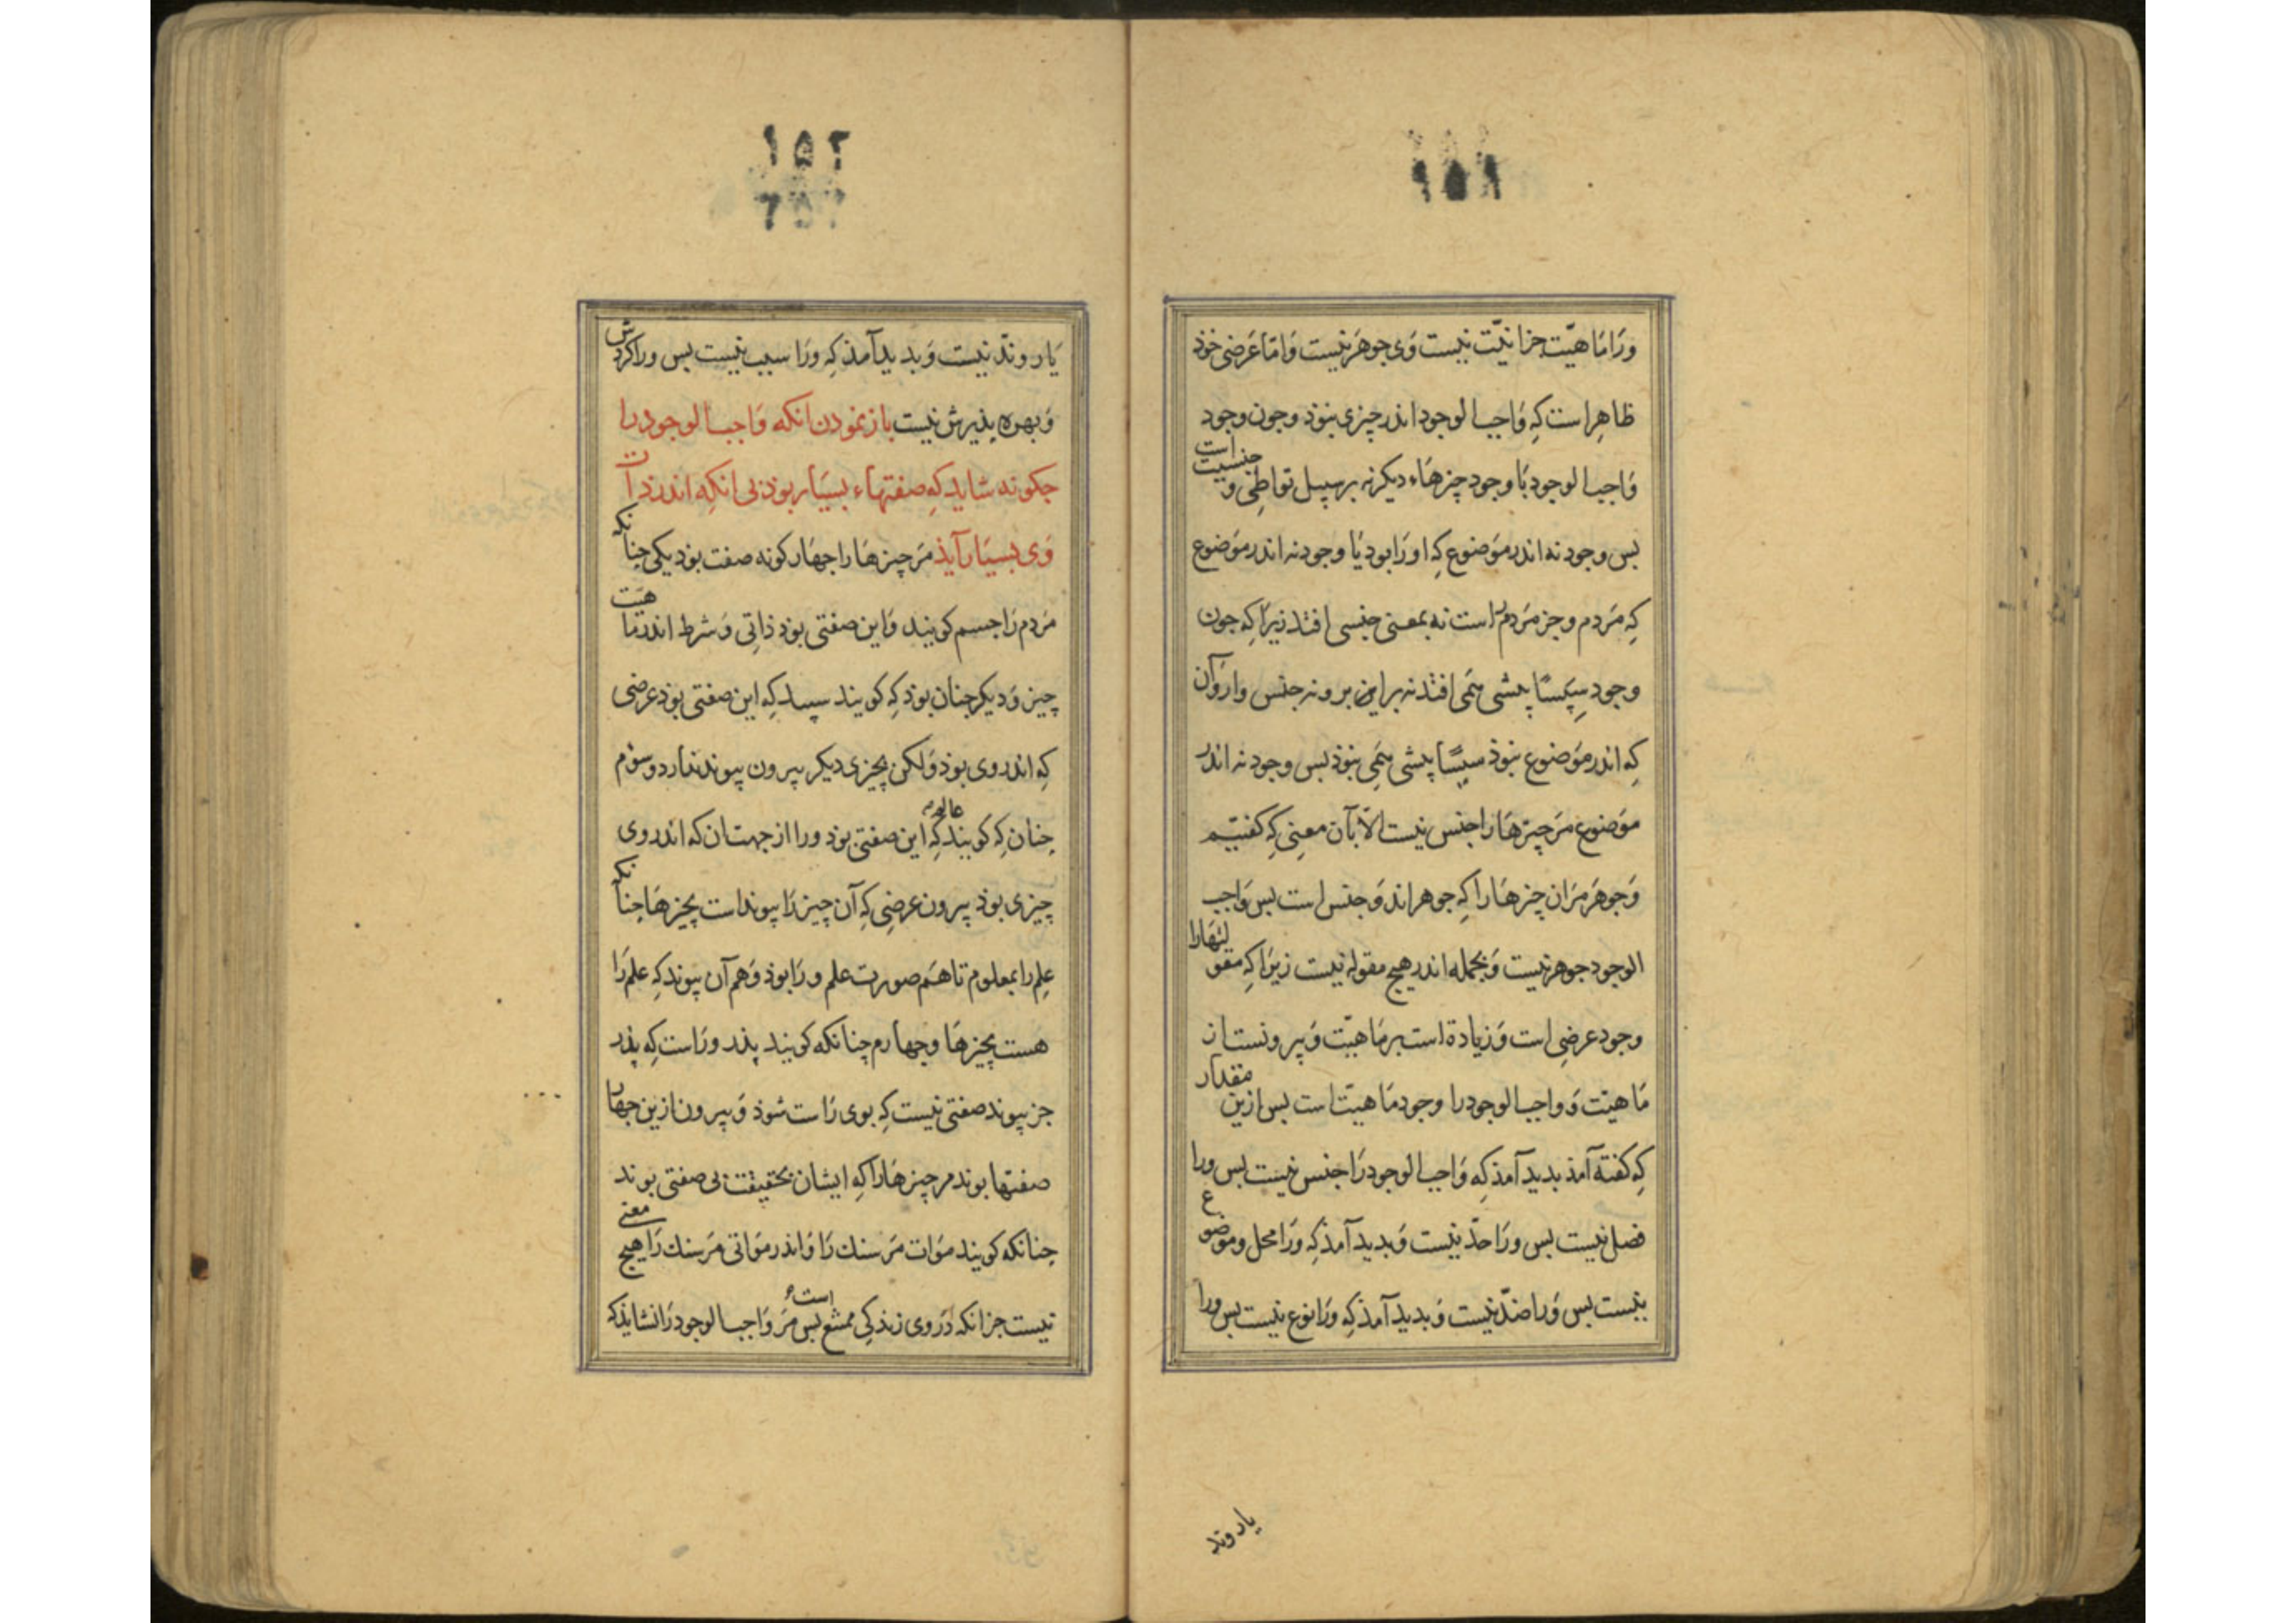 ۱۵۱
ورَا مَاهیّت جز انیّت نیست وَی جوهَر نیست وَامّا عَرضی خوذ
ظاهِر است کِه وَاجب الوجود اندر چیزی نبوَذ و جون وجود
وَاجب الوجود بَا وجود چیزهَاء دیکر نه بر سبیل تواطی و جنسیت است
بس وجود نه اندر مَوضوع کِه او رَا بود یَا وجود نه اندر مَوضوع
کِه مَردم و جز مَردم راست نه بمعنی جنسی افتد زیرَا کِه جون
وجود سِپسًا پیشی همَی افتد نه برابر بر و نه جنس وار وَ آن
کِه اندر مَوضوع نبوَذ سپسًا پیشی همِی نبوَذ بس وجود نه اندر
مَوضوع مَر چیزهَا را جنس نیست الّا بآن معنِی کِه کفتیم
وَ جوهَر مَران چیزهَا رَا کِه جوهراند وَ جنس است بس وَاجب
الوجود جوهر نیست وَ بجمله اندر هیج مقوله نیست زیرَا کِه مقولتهَا را
وجود عرضی است وَ زیادة است بر مَاهیّت وَ بیرونست از
مَاهیّت وَ واجب الوجود را وجود مَاهیّت است بس ازین مقدار
کِه کفته آمذ بدید آمذ کِه وَاجب الوجود رَا جنس نیست بس ورا
فصل نیست بس ورَا حدّ نیست وَ بدید آمذ کِه ورَا محل و موضوع
نیست بس وَرا ضدّ نیست وَ بدید آمذ کِه ورَا نوع نیست بس ورا
یار وند
۱۵۲
یَار و ندّ نیست وَ بدید آمذ کِه ورَا سبب نیست بس ورا کردش
وَ بهره بذیرش نیست باز نمودن انکه وَاجب الوجود را
جکونه شاید کِه صفتهاء بسیَار بوذ بی انکِه اندر ذات
وَی بسیَار آیذ مَر چیزهَا را جهَار کونه صفت بوَد یکی جنانکه
مَردم رَا جسم کویند وَ این صفتی بوَد ذاتِی وَ شرط اندر ماهیَت
چیز وَ دیکر جنان بوَد کِه کویند سپید کِه این صفتی بوَد عرَضی
کِه اندر وی بوَد وَ لکن بچیزی دیکر بیرون پیوند ندارد و سوَم
جنان کِه کَویند عالم کِه این صفتی بوَد ورا از جهت ان که اندر وی
چیزی بوَد بیرون عرضِی کِه آن چیز رَا پیوند است بچیزهَا جنانکه
عِلم را بمعلوم تا هَم صورت علم ورَا بوَذ وَ هَم آن پیوند کِه علم رَا
هست بچیزهَا و جهارم چنانکه کویند پذر ورَاست کِه پذر
جز پیوند صفتی نیست کِه بوی رَاست شوَذ وَ بیرون ازین جهار
صفتها بوند مر چیزهَا رَا کِه ایشان بحقیقت بی صفتی بوند
جنانکه کویند مَوات مَر سنك رَا وَ اندر مَواتی مَر سنك رَا هیج معنی
نیست جز انکه دَر وی زندکِی ممتنع است بس مَر وَاجب الوجود رَا نشایذ کِه